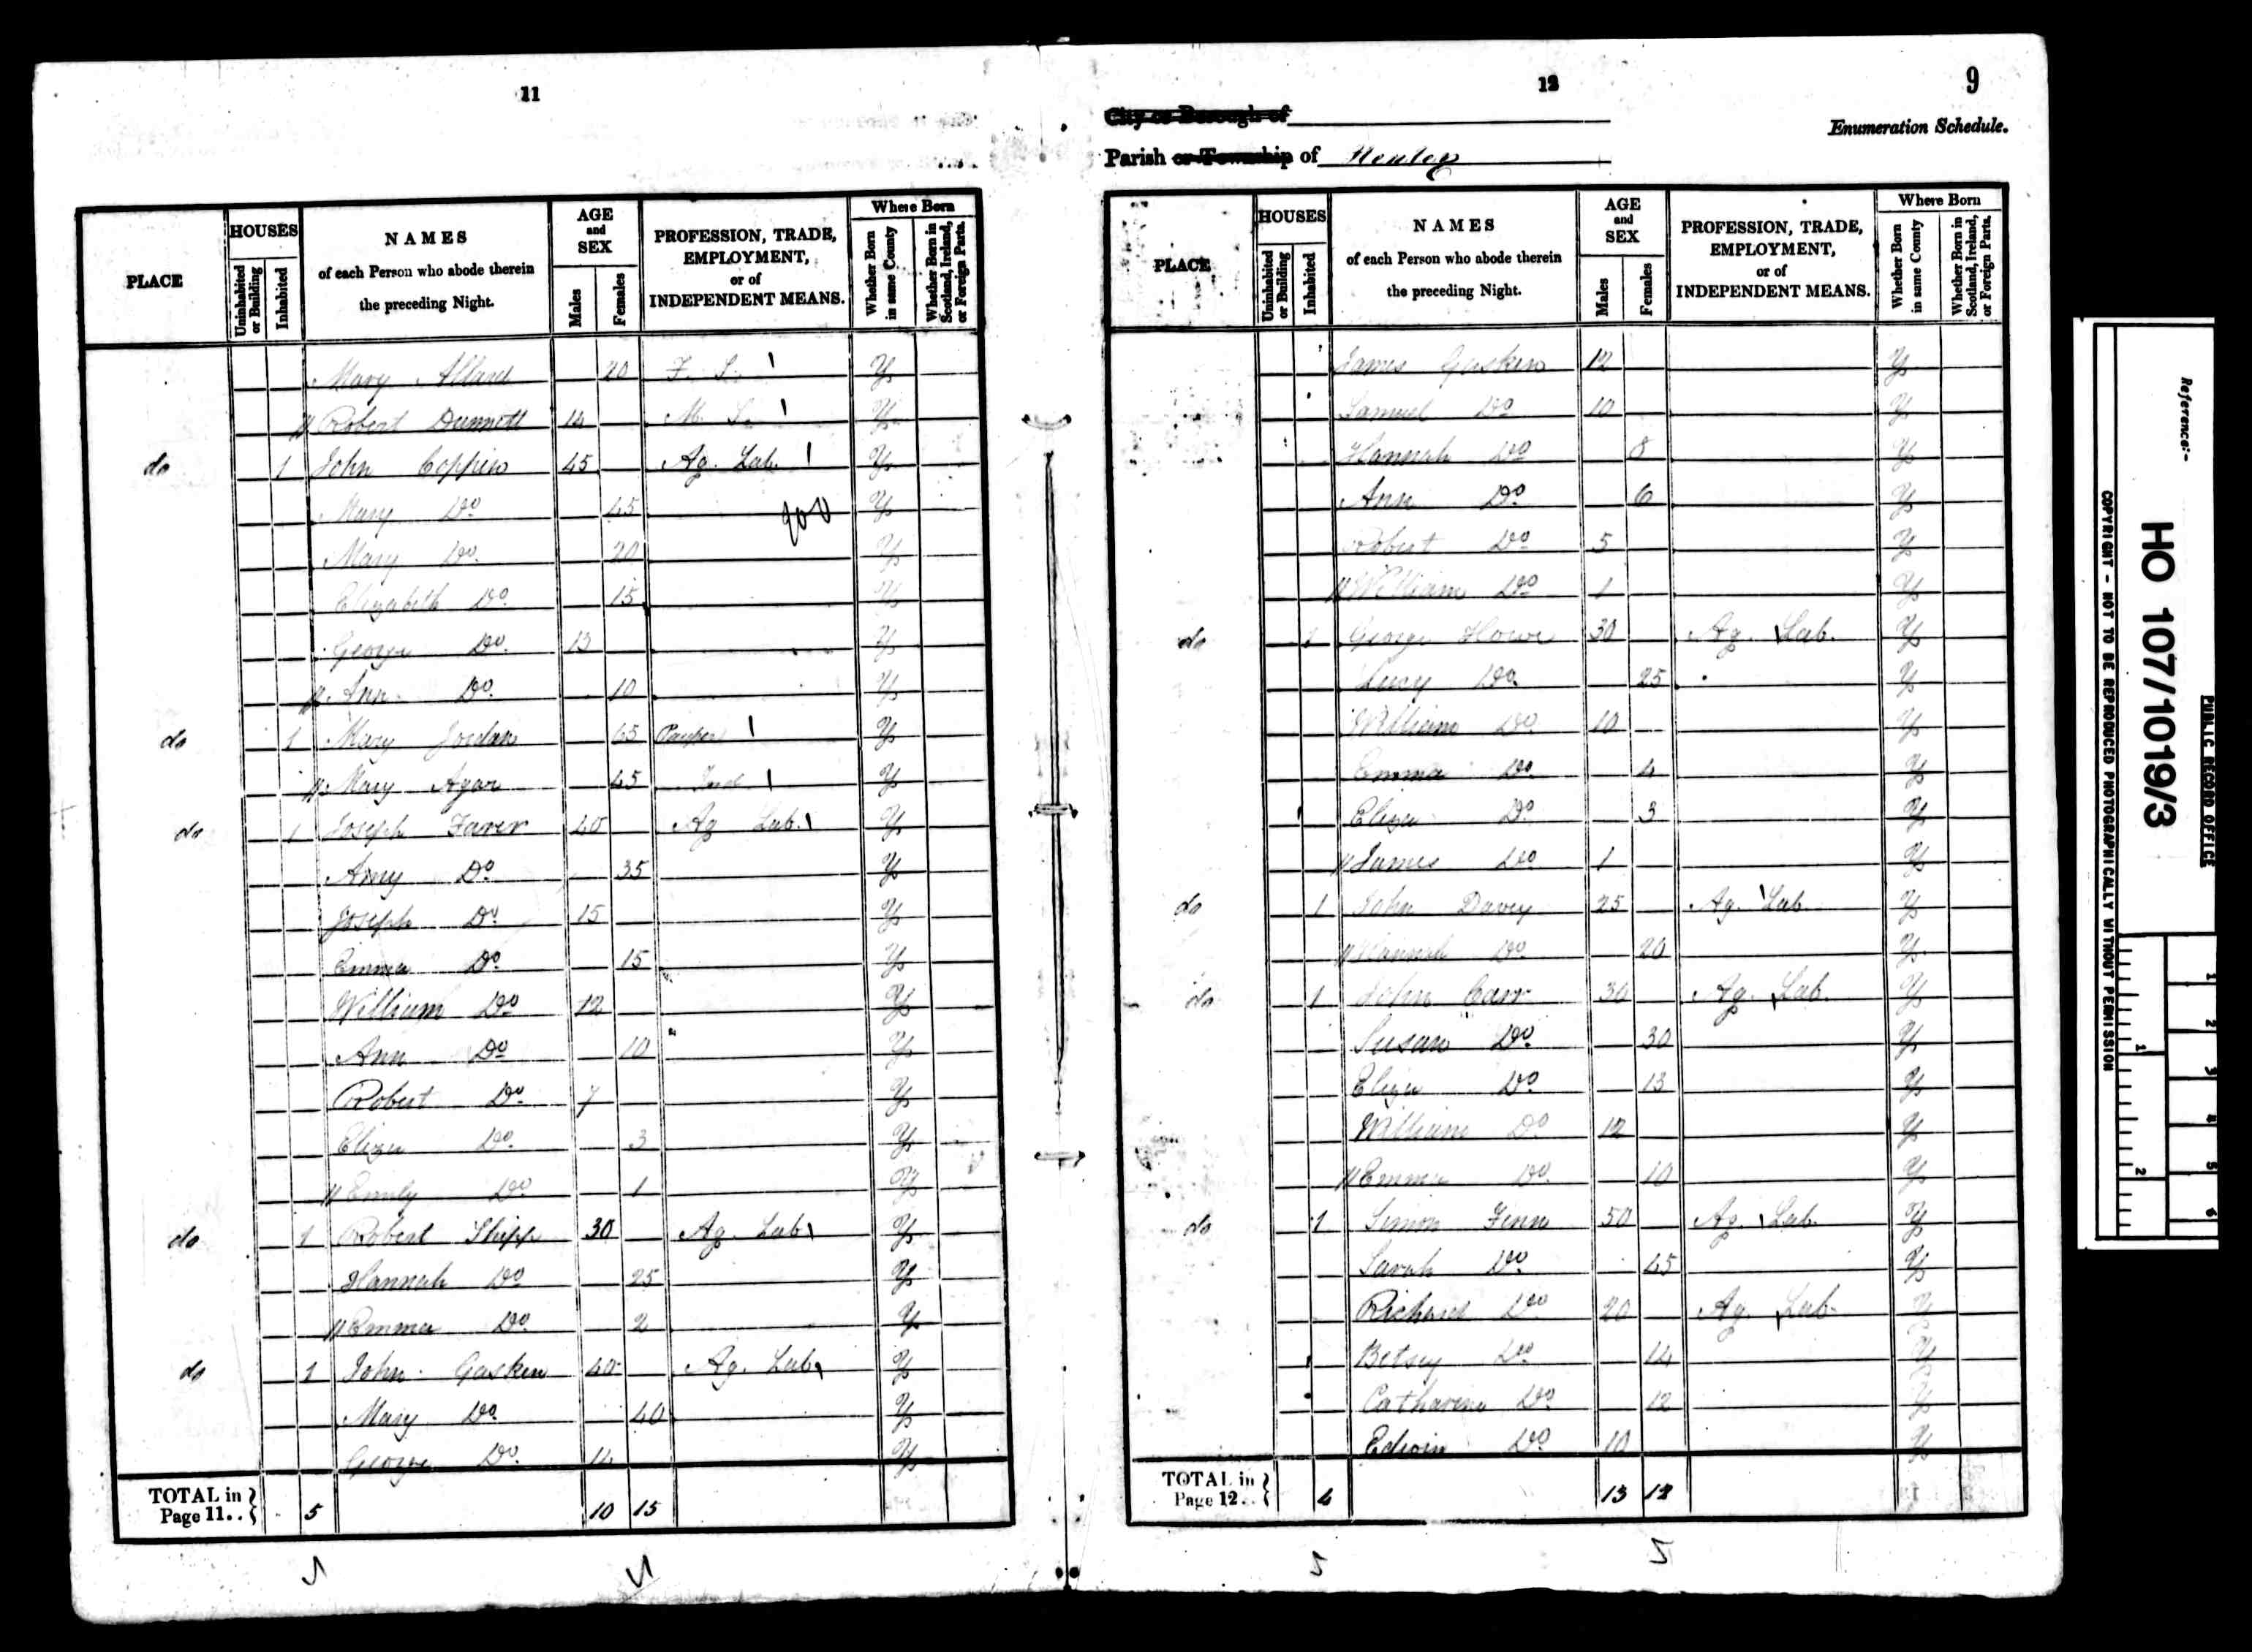 11
PLACE
HOUSES
Uninhabited or Building
Inhabited
NAMES
of each Person who abode therein
the preceding Night.
AGE
and
SEX
Males
Females
PROFESSION, TRADE,
EMPLOYMENT,
or of
INDEPENDENT MEANS.
Where Born
Whether Born in same County
Whether Born in Scotland, Ireland, or Foreign Parts.
Mary Allard 20 F. S. Y
Robert Dunnett 14 M. S. Y
do 1 John Coppin 45 Ag. Lab. Y
Mary Do 45 Y
Mary Do 20 Y
Elizabeth Do 15 Y
George Do 13 Y
Ann Do 10 Y
do 1 Mary Jordan 65 Pauper Y
Mary Agar 45 Ind. Y
do 1 Joseph Farer 40 Ag. Lab. Y
Amy Do 35 Y
Joseph Do 15 Y
Emma Do 15 Y
William Do 12 Y
Ann Do 10 Y
Robert Do 7 Y
Eliza Do 3 Y
Emily Do 1 Y
do 1 Robert Shipp 30 Ag. Lab Y
Hannah Do 25 Y
Emma Do 2 Y
do 1 John Gasken 40 Ag. Lab Y
Mary Do 40 Y
George Do 14 Y
TOTAL in
Page 11.. 5 10 15
12
9
City or Borough of
Enumeration Schedule.
Parish or Township of Henley
PLACE
HOUSES
Uninhabited or Building
Inhabited
NAMES
of each Person who abode therein
the preceding Night.
AGE
and
SEX
Males
Females
PROFESSION, TRADE,
EMPLOYMENT,
or of
INDEPENDENT MEANS.
Where Born
Whether Born in same County
Whether Born in Scotland, Ireland, or Foreign Parts.
James Gasken 12 Y
Samuel Do 10 Y
Hannah Do 8 Y
Ann Do 6 Y
Robert Do 5 Y
William Do 1 Y
do 1 George Howe 30 Ag. Lab. Y
Lucy Do 25 Y
William Do 10 Y
Emma Do 4 Y
Eliza Do 3 Y
James Do 1 Y
do 1 John Davey 25 Ag. Lab Y
Hannah Do 20 Y
do 1 John Carr 30 Ag. Lab. Y
Susan Do 30 Y
Eliza Do 13 Y
William Do 12 Y
Emma Do 10 Y
do 1 Simon Fenn 50 Ag. Lab. Y
Sarah Do 45 Y
Richard Do 20 Ag. Lab. Y
Betsey Do 14 Y
Catharine Do 12 Y
Edwin Do 10 Y
TOTAL in
Page 12.. 4 13 12
Reference:-
HO 107/1019/3
PUBLIC RECORD OFFICE
COPYRIGHT - NOT TO BE REPRODUCED PHOTOGRAPHICALLY WITHOUT PERMISSION
1 2 3 4 5 6
1 2